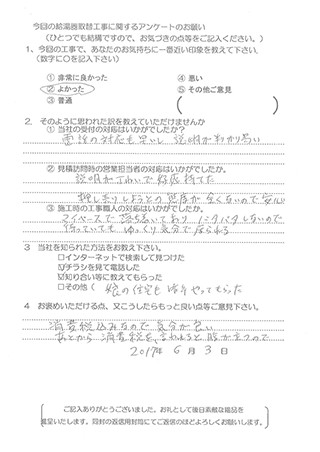 今回の給湯器取替工事に関するアンケートのお願い
(ひとつでも結構ですので、お気づきの点等をご記入ください。)
1、今回の工事で、あなたのお気持ちに一番近い印象を教えて下さい。
(数字に○を記入下さい)
① 非常に良かった ④ 悪い
② よかった ⑤ その他ご意見
③ 普通 ( )
2. そのように思われた訳を教えていただけませんか
① 当社の受付の対応はいかがでしたか?
電話の対応も早いし 説明がわかり易い
② 見積訪問時の営業担当者の対応はいかがでしたか。
説明がていねいで好感持てた
押し売りしようとの態度が全くないので安心
③ 施工時の工事職人の対応はいかがでしたか?
マイペースで落ち着いており バタバタしないので
待っていても ゆっくり気分で居られる
3 当社を知られた方法をお教え下さい。
□インターネットで検索して見つけた
☑チラシを見て電話した
☑知り合い等に教えてもらった
□その他( 娘の住宅も やってもらった
4 お褒めいただける点、又こうしたらもっと良い点等ご意見下さい。
消費税込みなので 気分が良い
あとから 消費税を 言われると 腹が立つので
2017年 6月 3日
ご記入ありがとうございました。お礼として後日素敵な粗品を
進呈いたします。同封の返信用封筒にてご返信のほどよろしくお願いします。